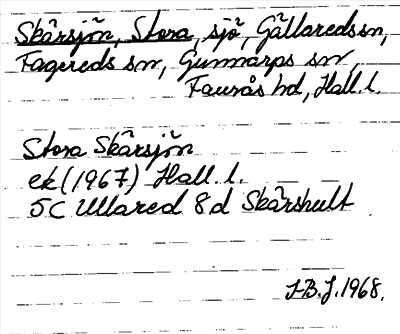 Skärsjön, Stora, sjö, Gällareds sn,
Fagereds sn, Gunnarps sn,
Faurås hd, Hall. l.
Stora Skärsjön
ek (1967) Hall. l.
5C Ullared 8d Skärshult
J-B.J. 1968.